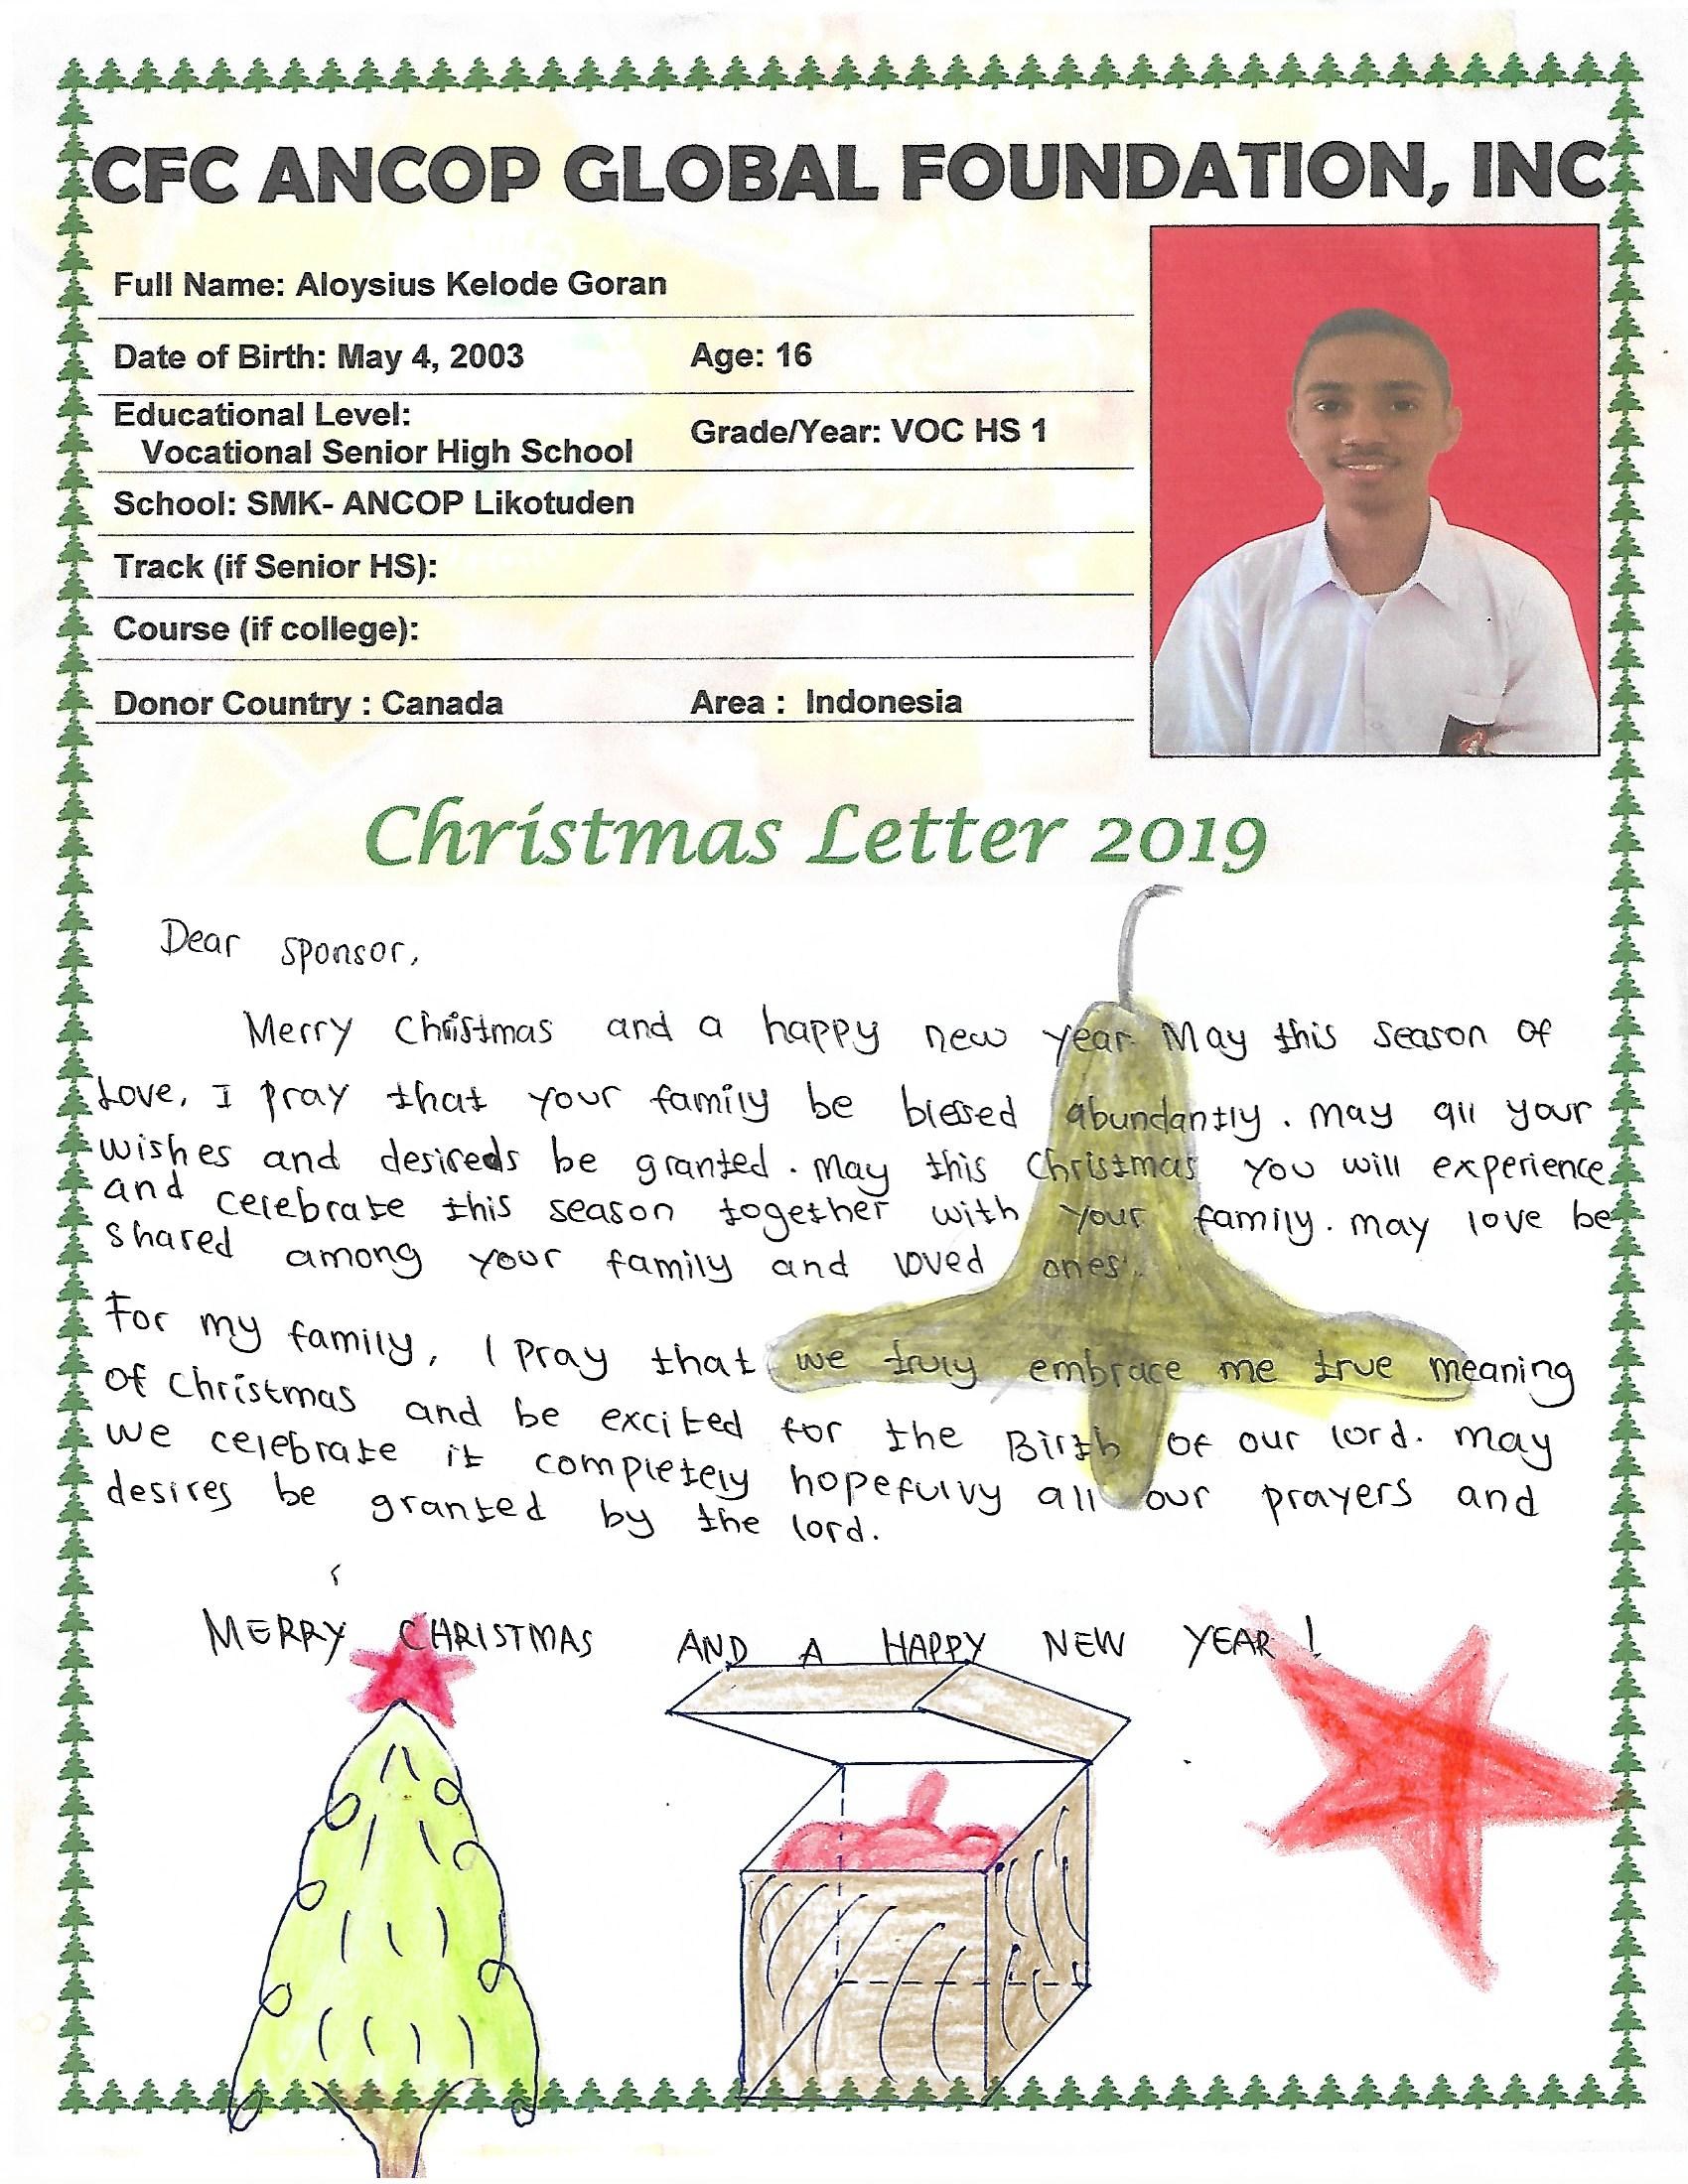 CFC ANCOP GLOBAL FOUNDATION, INC
Full Name: Aloysius Kelode Goran
Date of Birth: May 4, 2003 Age: 16
Educational Level:
Vocational Senior High School Grade/Year: VOC HS 1
School: SMK- ANCOP Likotuden
Track (if Senior HS):
Course (if college):
Donor Country : Canada Area : Indonesia
Christmas Letter 2019
Dear sponsor,
Merry Christmas and a happy new year. May this season of
Love, I pray that your family be blessed abundantly. may all your
wishes and desireds be granted. May this Christmas you will experience
and celebrate this season together with your family. may love be
shared among your family and loved ones.
For my family, I pray that we truly embrace me true meaning
of Christmas and be excited for the Birth of our lord. may
we celebrate it completely hopefulvy all our prayers and
desires be granted by the lord.
MERRY CHRISTMAS AND A HAPPY NEW YEAR !